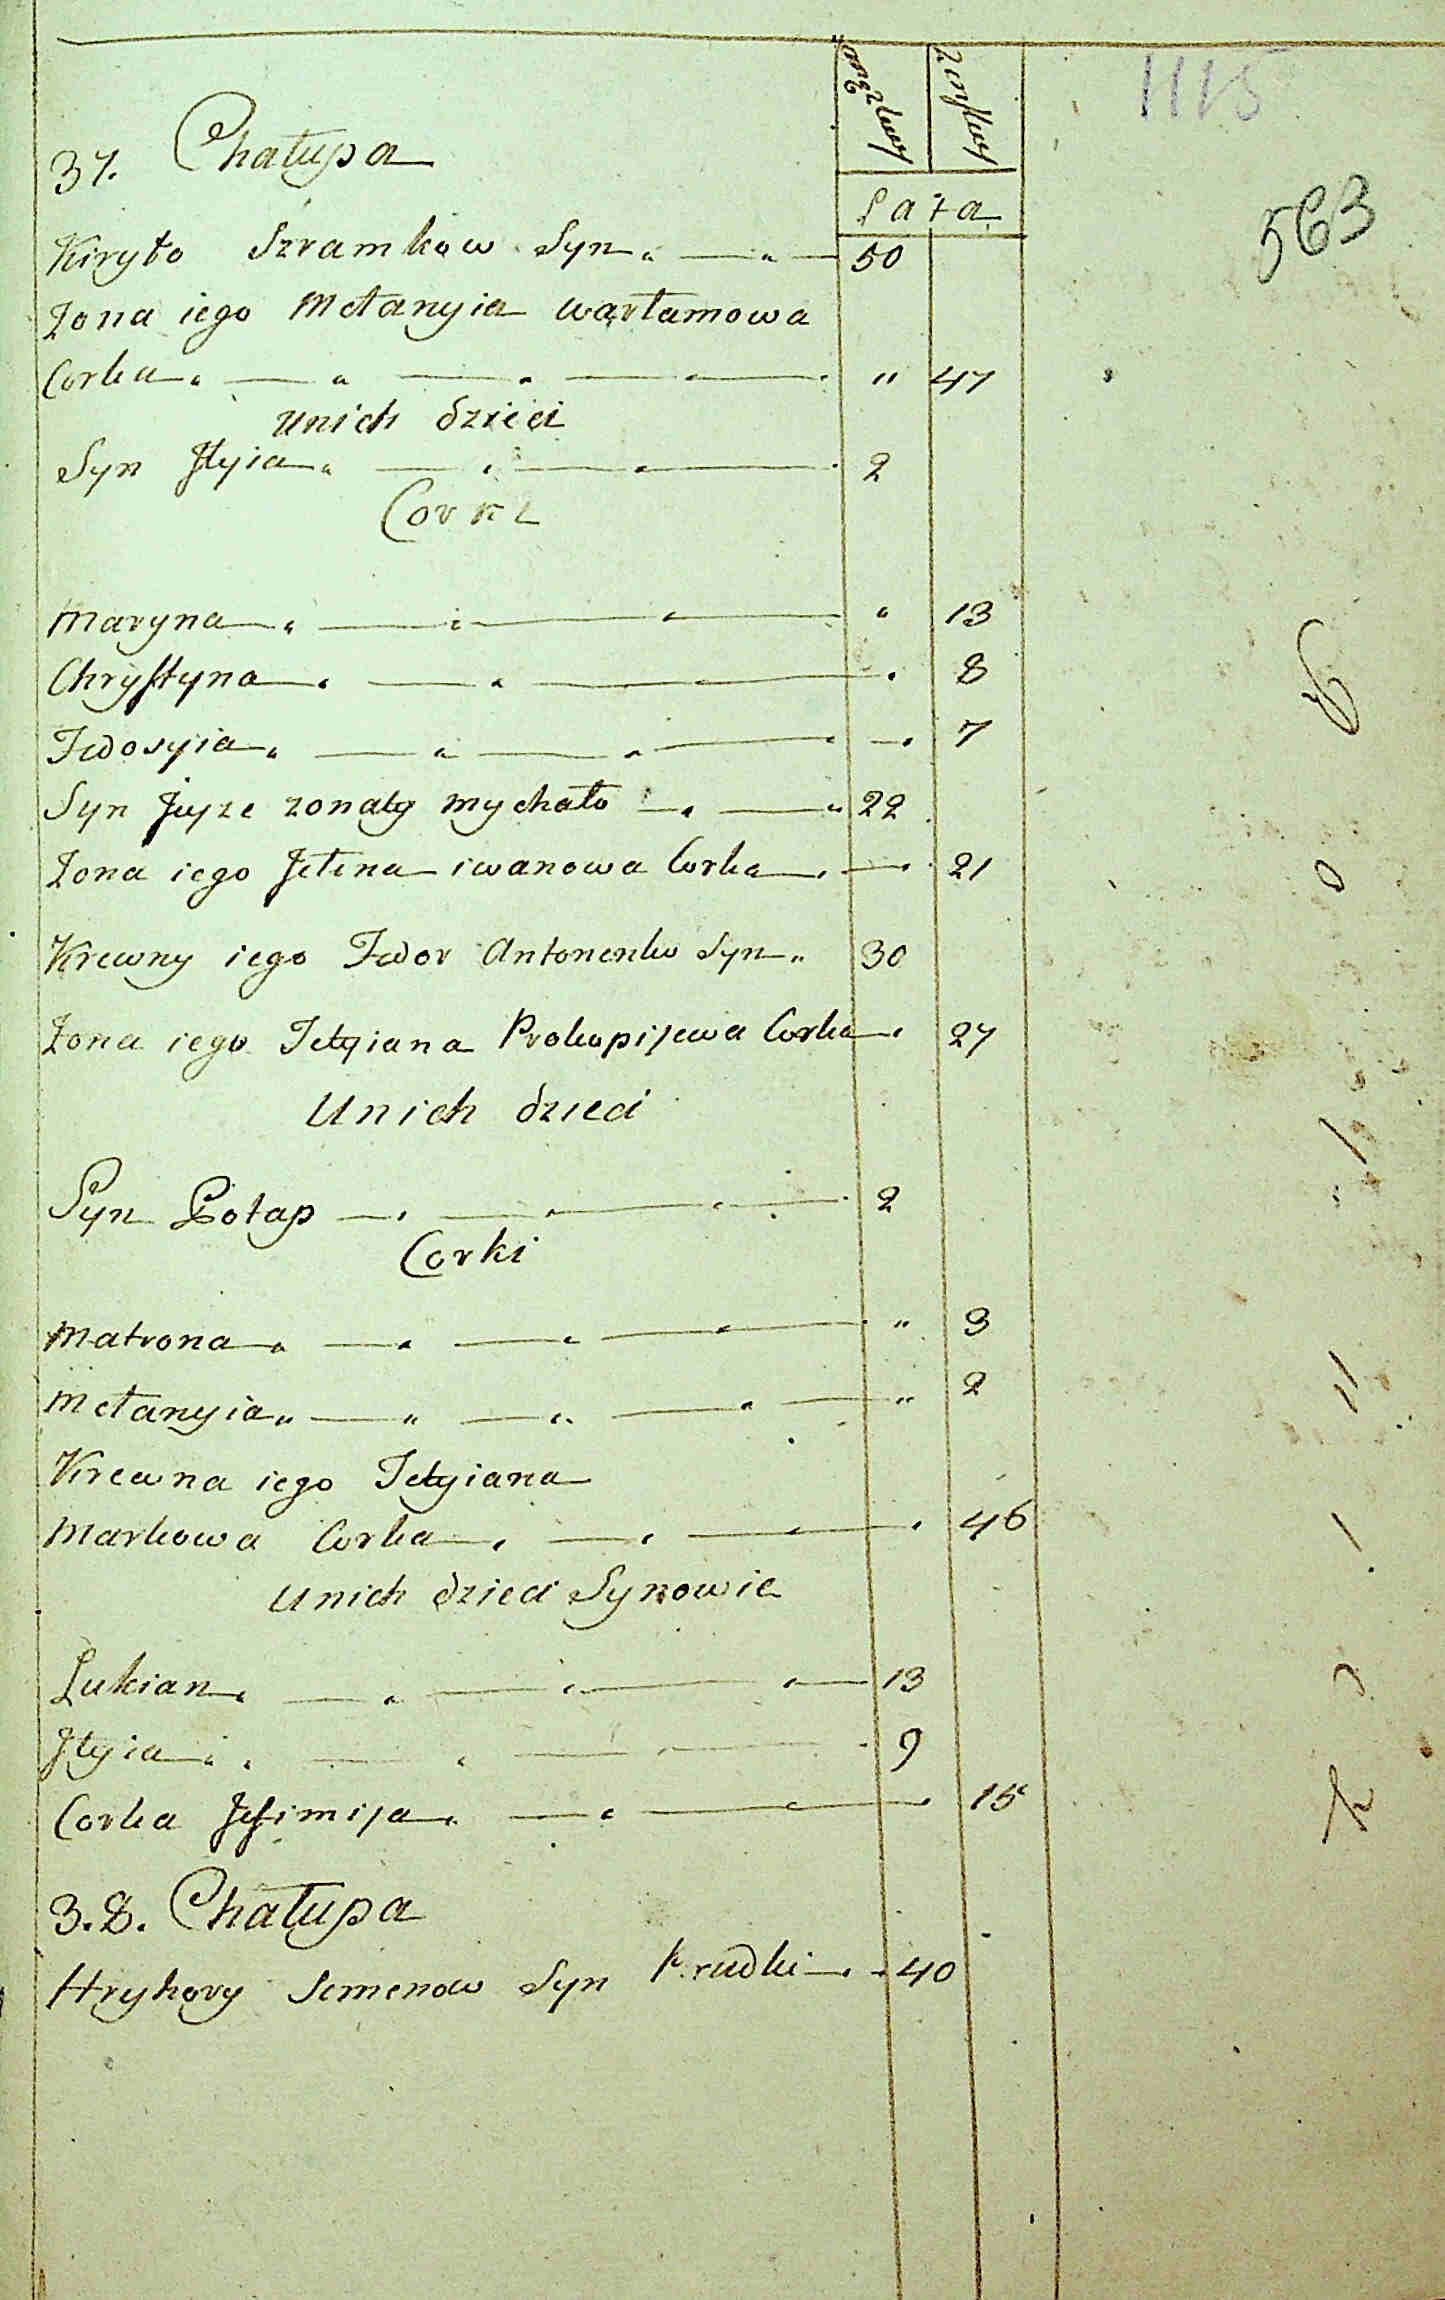 1115
563
męzkiey żenskiey
37. Chałupa
Łata
Kiryło Szramkow Syn 50
Żona iego Mełanyia Wartamowa
Corka " 47
Unich dzieci
Syn Jłyia 2
Corki
Maryna " 13
Chrystyna 8
Fedosyia 7
Syn Juze zonaty Mychało 22
Żona iego Jełena iwanowa Corka 21
Krewny iego Fedor Antonenko Syn " 30
Żona iego Tetyiana Prokopijewa Corka 27
Unich dzieci
Syn Potap 2
Corki
Matrona " 3
Mełanyia " 2
Krewna iego Tetyiana
Markowa Corka 46
Unich dzieci Synowie
Łukian 13
Jłyia 9
Corka Jefimija 15
3.8. Chałupa
Hryhory Semenow Syn Prudki 40